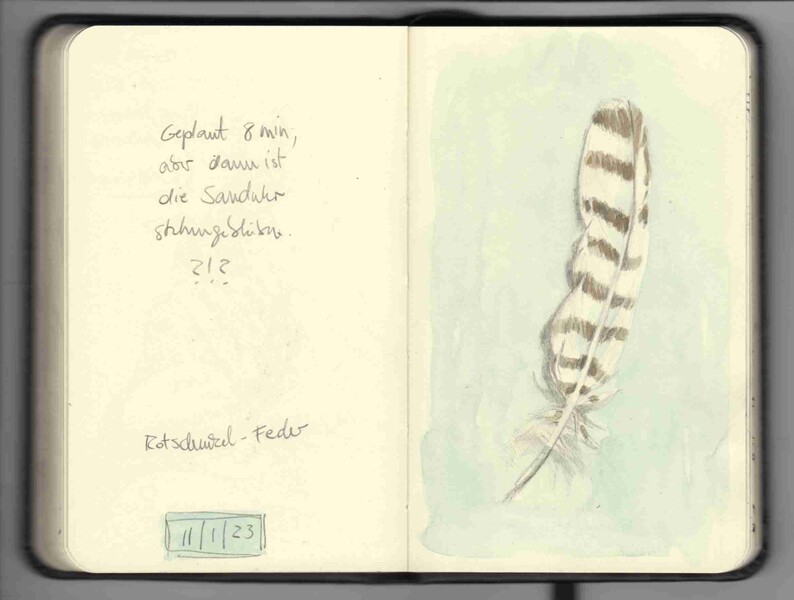 Geplant 8 min,
aber dann ist
die Sanduhr
stehengeblieben.
?!?
Rotschenkel - Feder
11|1|23